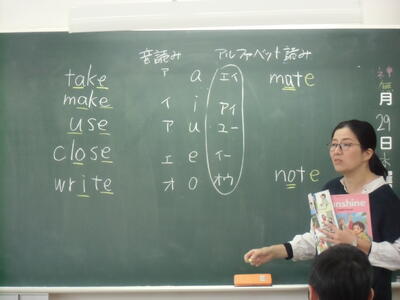 音読み アルファベット読み
take ア a エィ mate
make イ i アイ
use ア u ユー
close エ e イー
write オ o オウ note
神無月29日
nshine